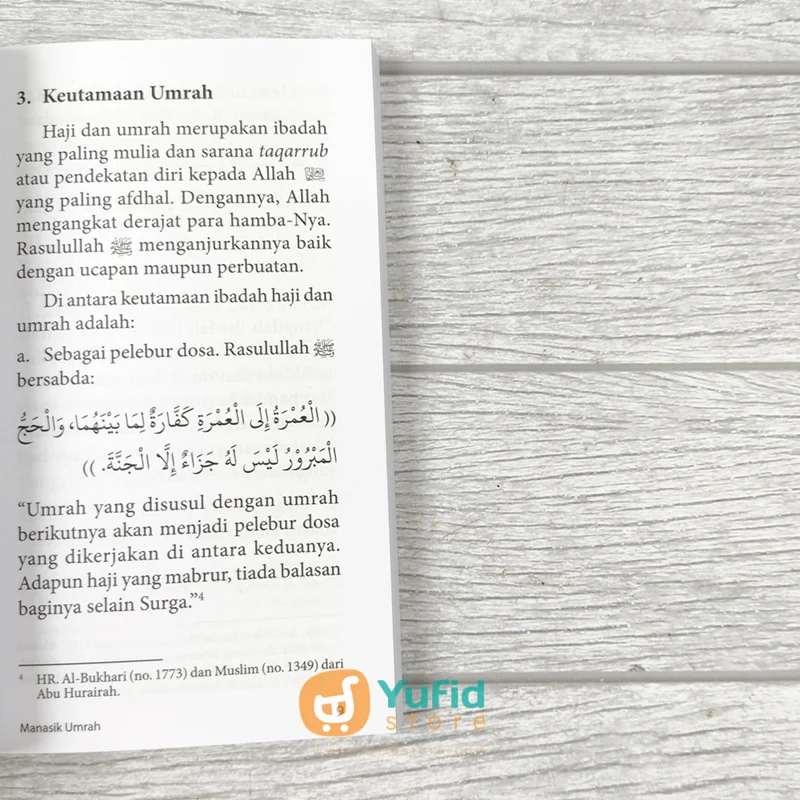 3. Keutamaan Umrah
Haji dan umrah merupakan ibadah
yang paling mulia dan sarana taqarrub
atau pendekatan diri kepada Allah
yang paling afdhal. Dengannya, Allah
mengangkat derajat para hamba-Nya.
Rasulullah ﷺ menganjurkannya baik
dengan ucapan maupun perbuatan.
Di antara keutamaan ibadah haji dan
umrah adalah:
a. Sebagai pelebur dosa. Rasulullah ﷺ
bersabda:
(( الْعُمْرَةُ إِلَى الْعُمْرَةِ كَفَّارَةٌ لِمَا بَيْنَهُمَا، وَالْحَجُّ
الْمَبْرُوْرُ لَيْسَ لَهُ جَزَاءٌ إِلَّا الْجَنَّةَ. ))
“Umrah yang disusul dengan umrah
berikutnya akan menjadi pelebur dosa
yang dikerjakan di antara keduanya.
Adapun haji yang mabrur, tiada balasan
baginya selain Surga.”4
4 HR. Al-Bukhari (no. 1773) dan Muslim (no. 1349) dari
Abu Hurairah.
Manasik Umrah 9
Yufid
store